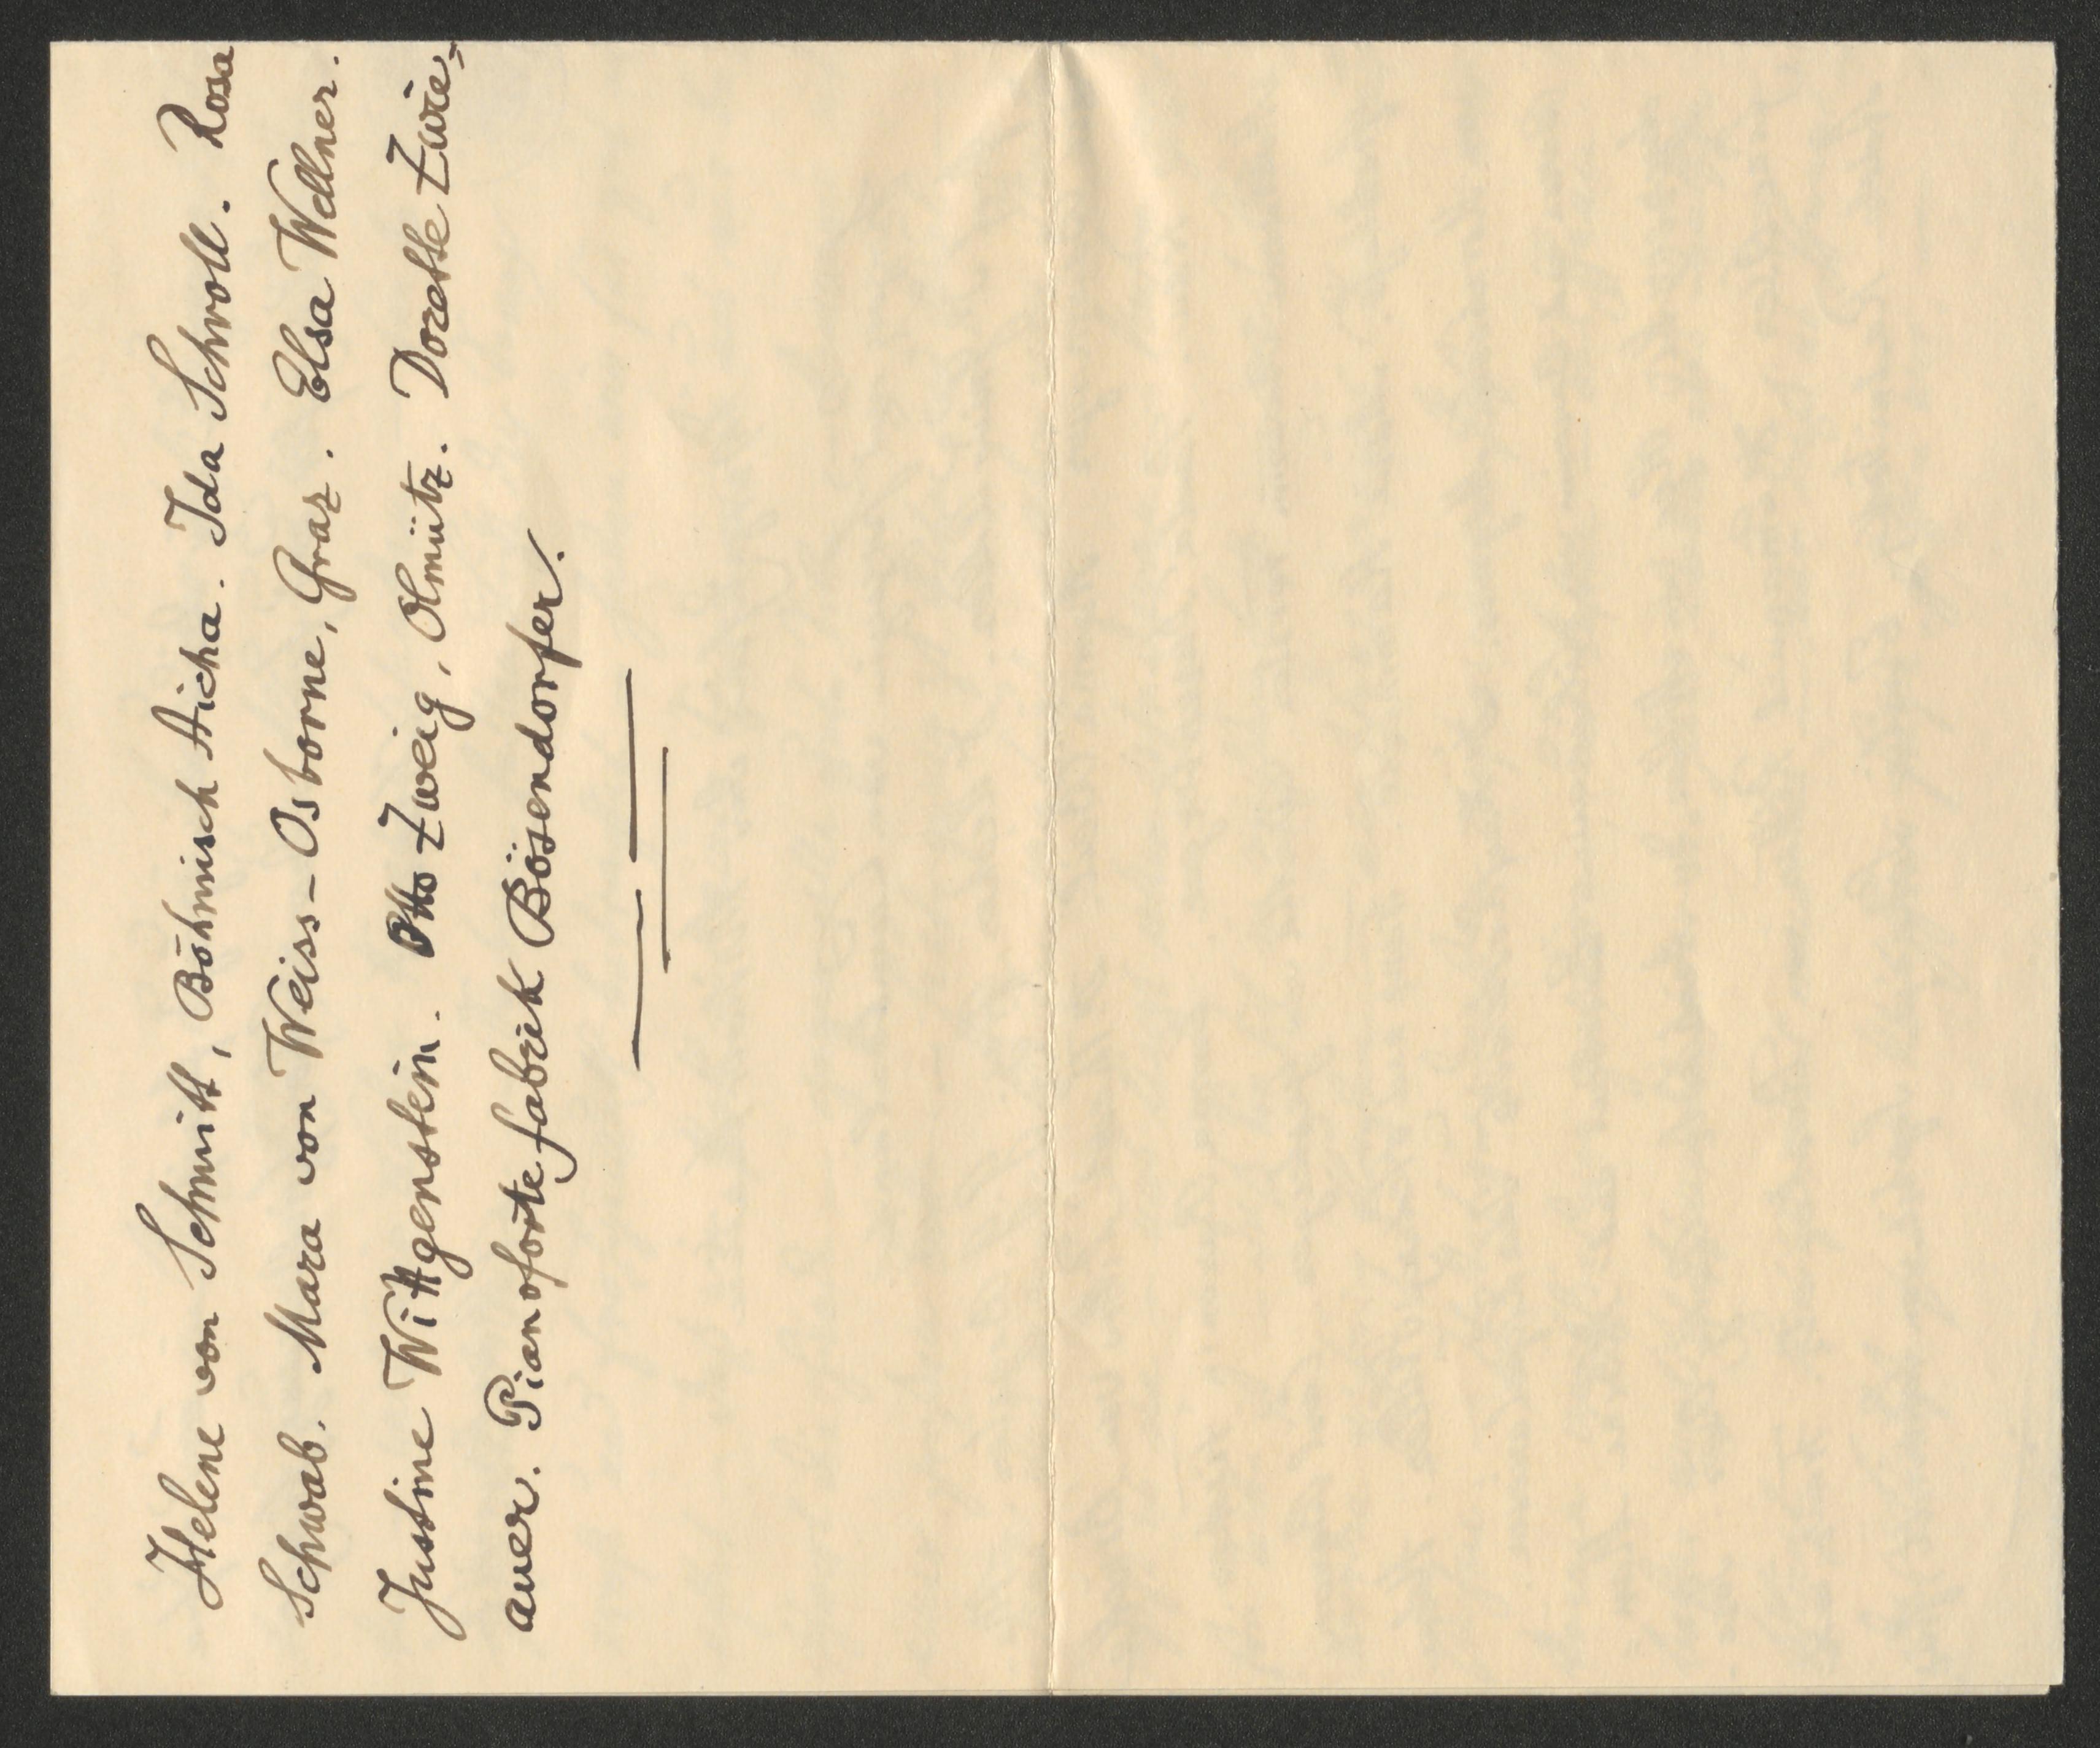 Helene von Schmitt, Böhmisch Aicha. Ida Schroll. Rosa
Schwab. Mara von Weiss-Osborne, Graz. Elsa Wellner.
Justine Wittgenstein. Otto Zweig, Olmütz. Dorette Zwie=
auer. Pianofortefabrik Bösendorfer.